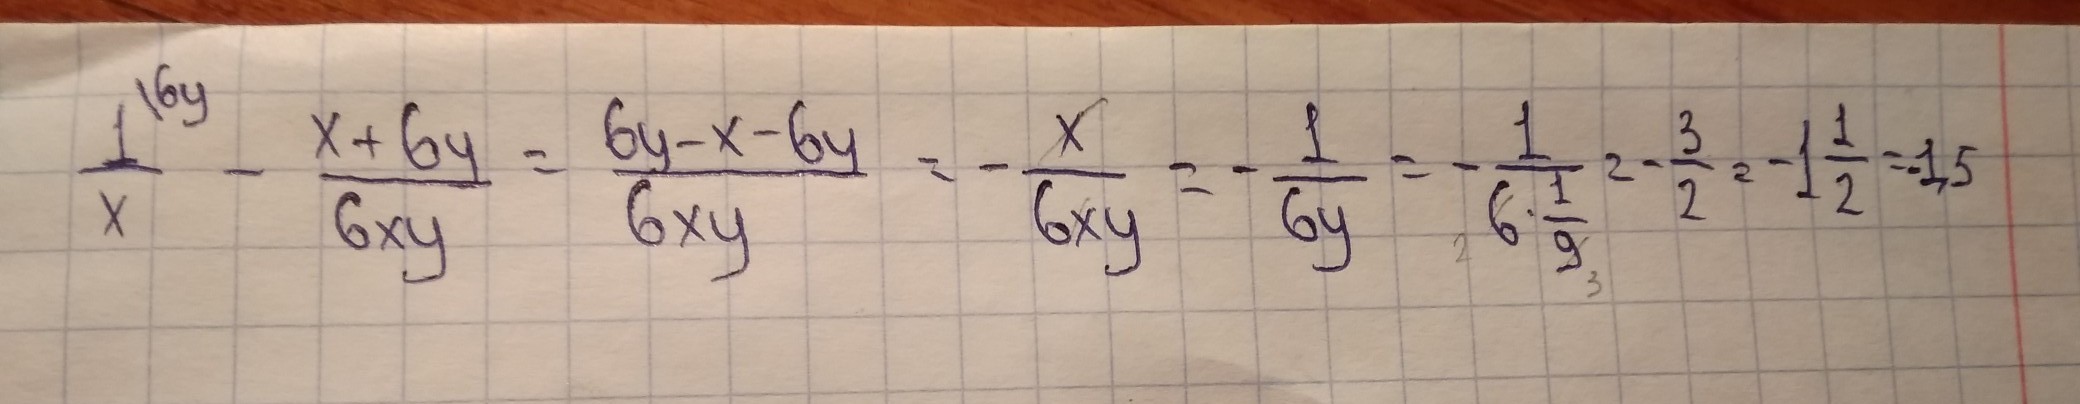 \frac{1^{\backslash 6y}}{x} - \frac{x+6y}{6xy} = \frac{6y-x-6y}{6xy} = -\frac{x}{6xy} = -\frac{1}{6y} = -\frac{1}{{}_{2}6 \cdot \frac{1}{9_{3}}} = -\frac{3}{2} = -1\frac{1}{2} = -1,5